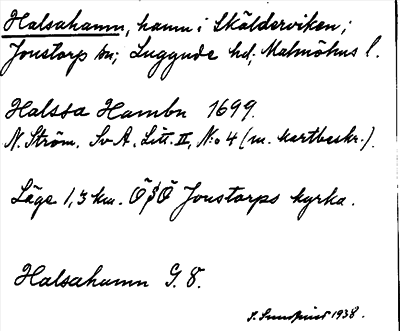 Halsahamn, hamn i Skälderviken;
Jonstorp sn; Luggude hd; Malmöhus l.
Halssa Hambn 1699.
N. Ström. Sv A. Litt. II, N:o 4 (m. kartbeskr.).
Läge 1,3 km. ÖSÖ Jonstorps kyrka.
Halsahamn G. 8.
S. Sundquist 1938.